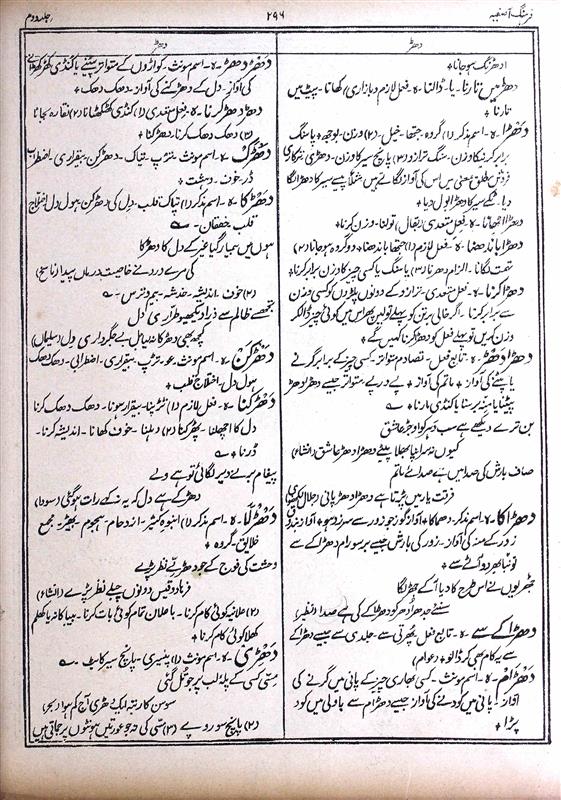 فرہنگ آصفیہ
۲۹۶
جلد دوم
دھڑ
دھڑ
ادھڑنگ ہو جانا +
دھڑ میں تارنا۔ یا۔ ڈالنا۔ ہ۔ فعل لازم (بازاری) کھانا۔ پیٹ میں
تارنا +
دھڑا۔ ہ۔ اسم مذکر (۱) گروہ۔ جتھا۔ خیل۔ (۲) وزن۔ بوجھ + پاسنگ
برابر کرنیکا وزن۔ سنگ ترازو (۳) پانچ سیر کا وزن۔ دھڑی
دیا۔ جیسے سیر کا دھڑا بول دیا +
دھڑا اٹھانا۔ ہ۔ فعل متعدی (بقال) تولنا۔ وزن کرنا +
دھڑا باندھنا۔ ہ۔ فعل لازم (۱) جتھا باندھنا + دو گروہ ہو جانا (۲)
تہمت لگانا۔ الزام دھرنا (۳) پاسنگ یا کسی چیز کا وزن برابر کرنا +
دھڑا کرنا۔ ہ۔ فعل متعدی۔ ترازو کے دونوں پلڑوں کو کسی وزن
سے برابر کرنا۔ اگر خالی برتن کو پہلے تولیں پھر اس میں کوئی چیز ڈالکر
وزن کریں تو پہلے فعل کو دھڑا کرنا کہیں گے +
دھڑا دھڑ۔ ہ۔ تابع فعل۔ تصادم متواتر۔ کسی چیز کے برابر گرنے
یا پٹنے کی آواز + ماتم کی آواز + پے در پے۔ متواتر جیسے دھڑا دھڑ
پیٹنا یا مینہ برسنا یا کنڈی مارنا + ؎
بن ترے دیکھے ہے سب دہر کو اوجڑ عاشق
کیوں نہ سر اپنا بھلا پیٹے دھڑا دھڑ عاشق (انشاء)
صاف بارش کی صدا میں ہے صدائے ماتم
فرقت یار میں پڑتا ہے دھڑا دھڑ پانی (جلال لکھنوی)
دھڑاکا۔ ہ۔ اسم مذکر۔ دھماکا + آواز گوز جو زور سے سرزد ہو + آواز بندوق
زور کے مینہ کی آواز۔ زور کی بارش جیسے برسو رام دھڑاکے سے
بڑھیا مر گئی فاقے سے +
سنئے جدھر ادھر کو دھڑاکے کی ہے صدا (نظیر)
دھڑاکے سے۔ ہ۔ تابع فعل۔ پھرتی سے۔ جلدی سے جیسے دھڑاکے
سے یہ کام بھی کر ڈالو + (عوام)
دھڑام۔ ہ۔ اسم مؤنث۔ کسی بھاری چیز کے پانی میں گرنے کی
آواز۔ پانی میں کودنے کی آواز جیسے دھڑام سے باؤلی میں کود
پڑا +
دھڑ دھڑ۔ ہ۔ اسم مؤنث۔ کواڑوں کے متواتر پٹنے یا کنڈی کھڑکھڑانے
کی آواز۔ دل کے دھڑکنے کی آواز۔ دھک دھک +
دھڑ دھڑ کرنا۔ ہ۔ فعل متعدی (۱) کنڈی کھٹکھٹانا (۲) نقارہ بجانا
(۳) دھک دھک کرنا۔ دھڑکنا +
دھڑک۔ ہ۔ اسم مؤنث۔ تڑپ۔ تپاک۔ دھڑکن۔ بیقراری۔ اضطراب
ڈر۔ خوف۔ دہشت +
دھڑکا۔ ہ۔ اسم مذکر (۱) تپاک قلب۔ دل کی دھڑکن۔ ہول دل۔ اختلاج
قلب۔ خفقان۔ ؎
ہوں میں بیمار گیا غیر کے دل کا دھڑکا
کی مرے درد نے خاصیت درماں پیدا (ناسخ)
(۲) خوف۔ اندیشہ۔ خدشہ۔ بیم و ترس۔ ؎
تجھ سے ظالم سے ذرا دیکھیو طراری دل
کچھ بھی دھڑکا نہ کیا بل بے جگرداری دل (سلیماں)
دھڑکن۔ ہ۔ اسم مؤنث۔ عو۔ تڑپ۔ بیقراری۔ اضطرابی۔ دھک دھک
ہول دل۔ اختلاج قلب +
دھڑکنا۔ ہ۔ فعل لازم (۱) تڑپنا۔ بیقرار ہونا۔ دھک دھک کرنا
دل کا اچھلنا۔ پھڑکنا (۲) دہلنا۔ خوف کھانا۔ اندیشہ کرنا۔
ڈرنا + ؎
پیغام بر نے دیر لگائی تو ہے ولے
دھڑکے ہے دل کہ یہ نہ کہے رات ہو گئی (سودا)
دھڑلا۔ ہ۔ اسم مذکر (۱) انبوہ کثیر۔ ازدحام۔ ہجوم۔ بھیڑ۔ مجمع
خلائق۔ گروہ +
وحشت کی فوج کے جو دھڑلے نظر پڑے
فرہاد و قیس دونوں چلے نظر پڑے (انشاء)
(۲) علانیہ کوئی کام کرنا۔ با علان تمام کوئی بات کرنا۔ بیباکانہ یا کھلم
کھلا کوئی کام کرنا +
دھڑی۔ ہ۔ اسم مؤنث (۱) پنسیری۔ پانچ سیر کا بٹ ؎
مسّی کسی کے پلۂ لب پر جو تل گئی
سوسن کا رتبہ ایک دھڑی آج کم ہوا (بحر)
(۲) پانچ سو روپے (۳) مسّی کی تہ جو عورتیں ہونٹوں پر جماتی ہیں